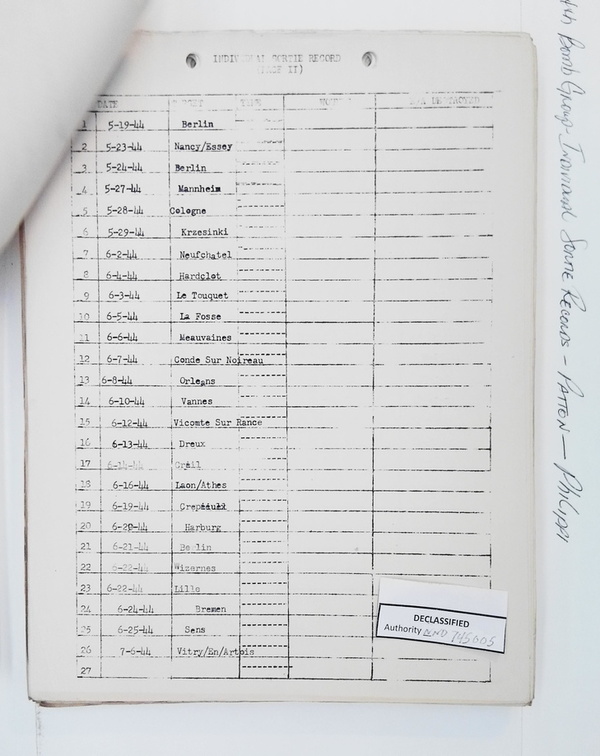 INDIVIDUAL SORTIE RECORD
(PAGE II)
DATE
1 5-19-44 Berlin
2 5-23-44 Nancy/Essey
3 5-24-44 Berlin
4 5-27-44 Mannheim
5 5-28-44 Cologne
6 5-29-44 Krzesinki
7 6-2-44 Neufchatel
8 6-4-44 Hardelot
9 6-3-44 Le Touquet
10 6-5-44 La Fosse
11 6-6-44 Meauvaines
12 6-7-44 Conde Sur Noireau
13 6-8-44 Orleans
14 6-10-44 Vannes
15 6-12-44 Vicomte Sur Rance
16 6-13-44 Dreux
17 6-14-44 Creil
18 6-16-44 Laon/Athes
19 6-19-44
20 6-20-44 Harburg
21 6-21-44 Berlin
22 6-22-44 Wizernes
23 6-22-44 Lille
24 6-24-44 Bremen
25 6-25-44 Sens
26 7-6-44 Vitry/En/Artois
27
DECLASSIFIED
Authority NND 745005
4th Bomb Group Individual Sortie Records - PATTON - Philippi